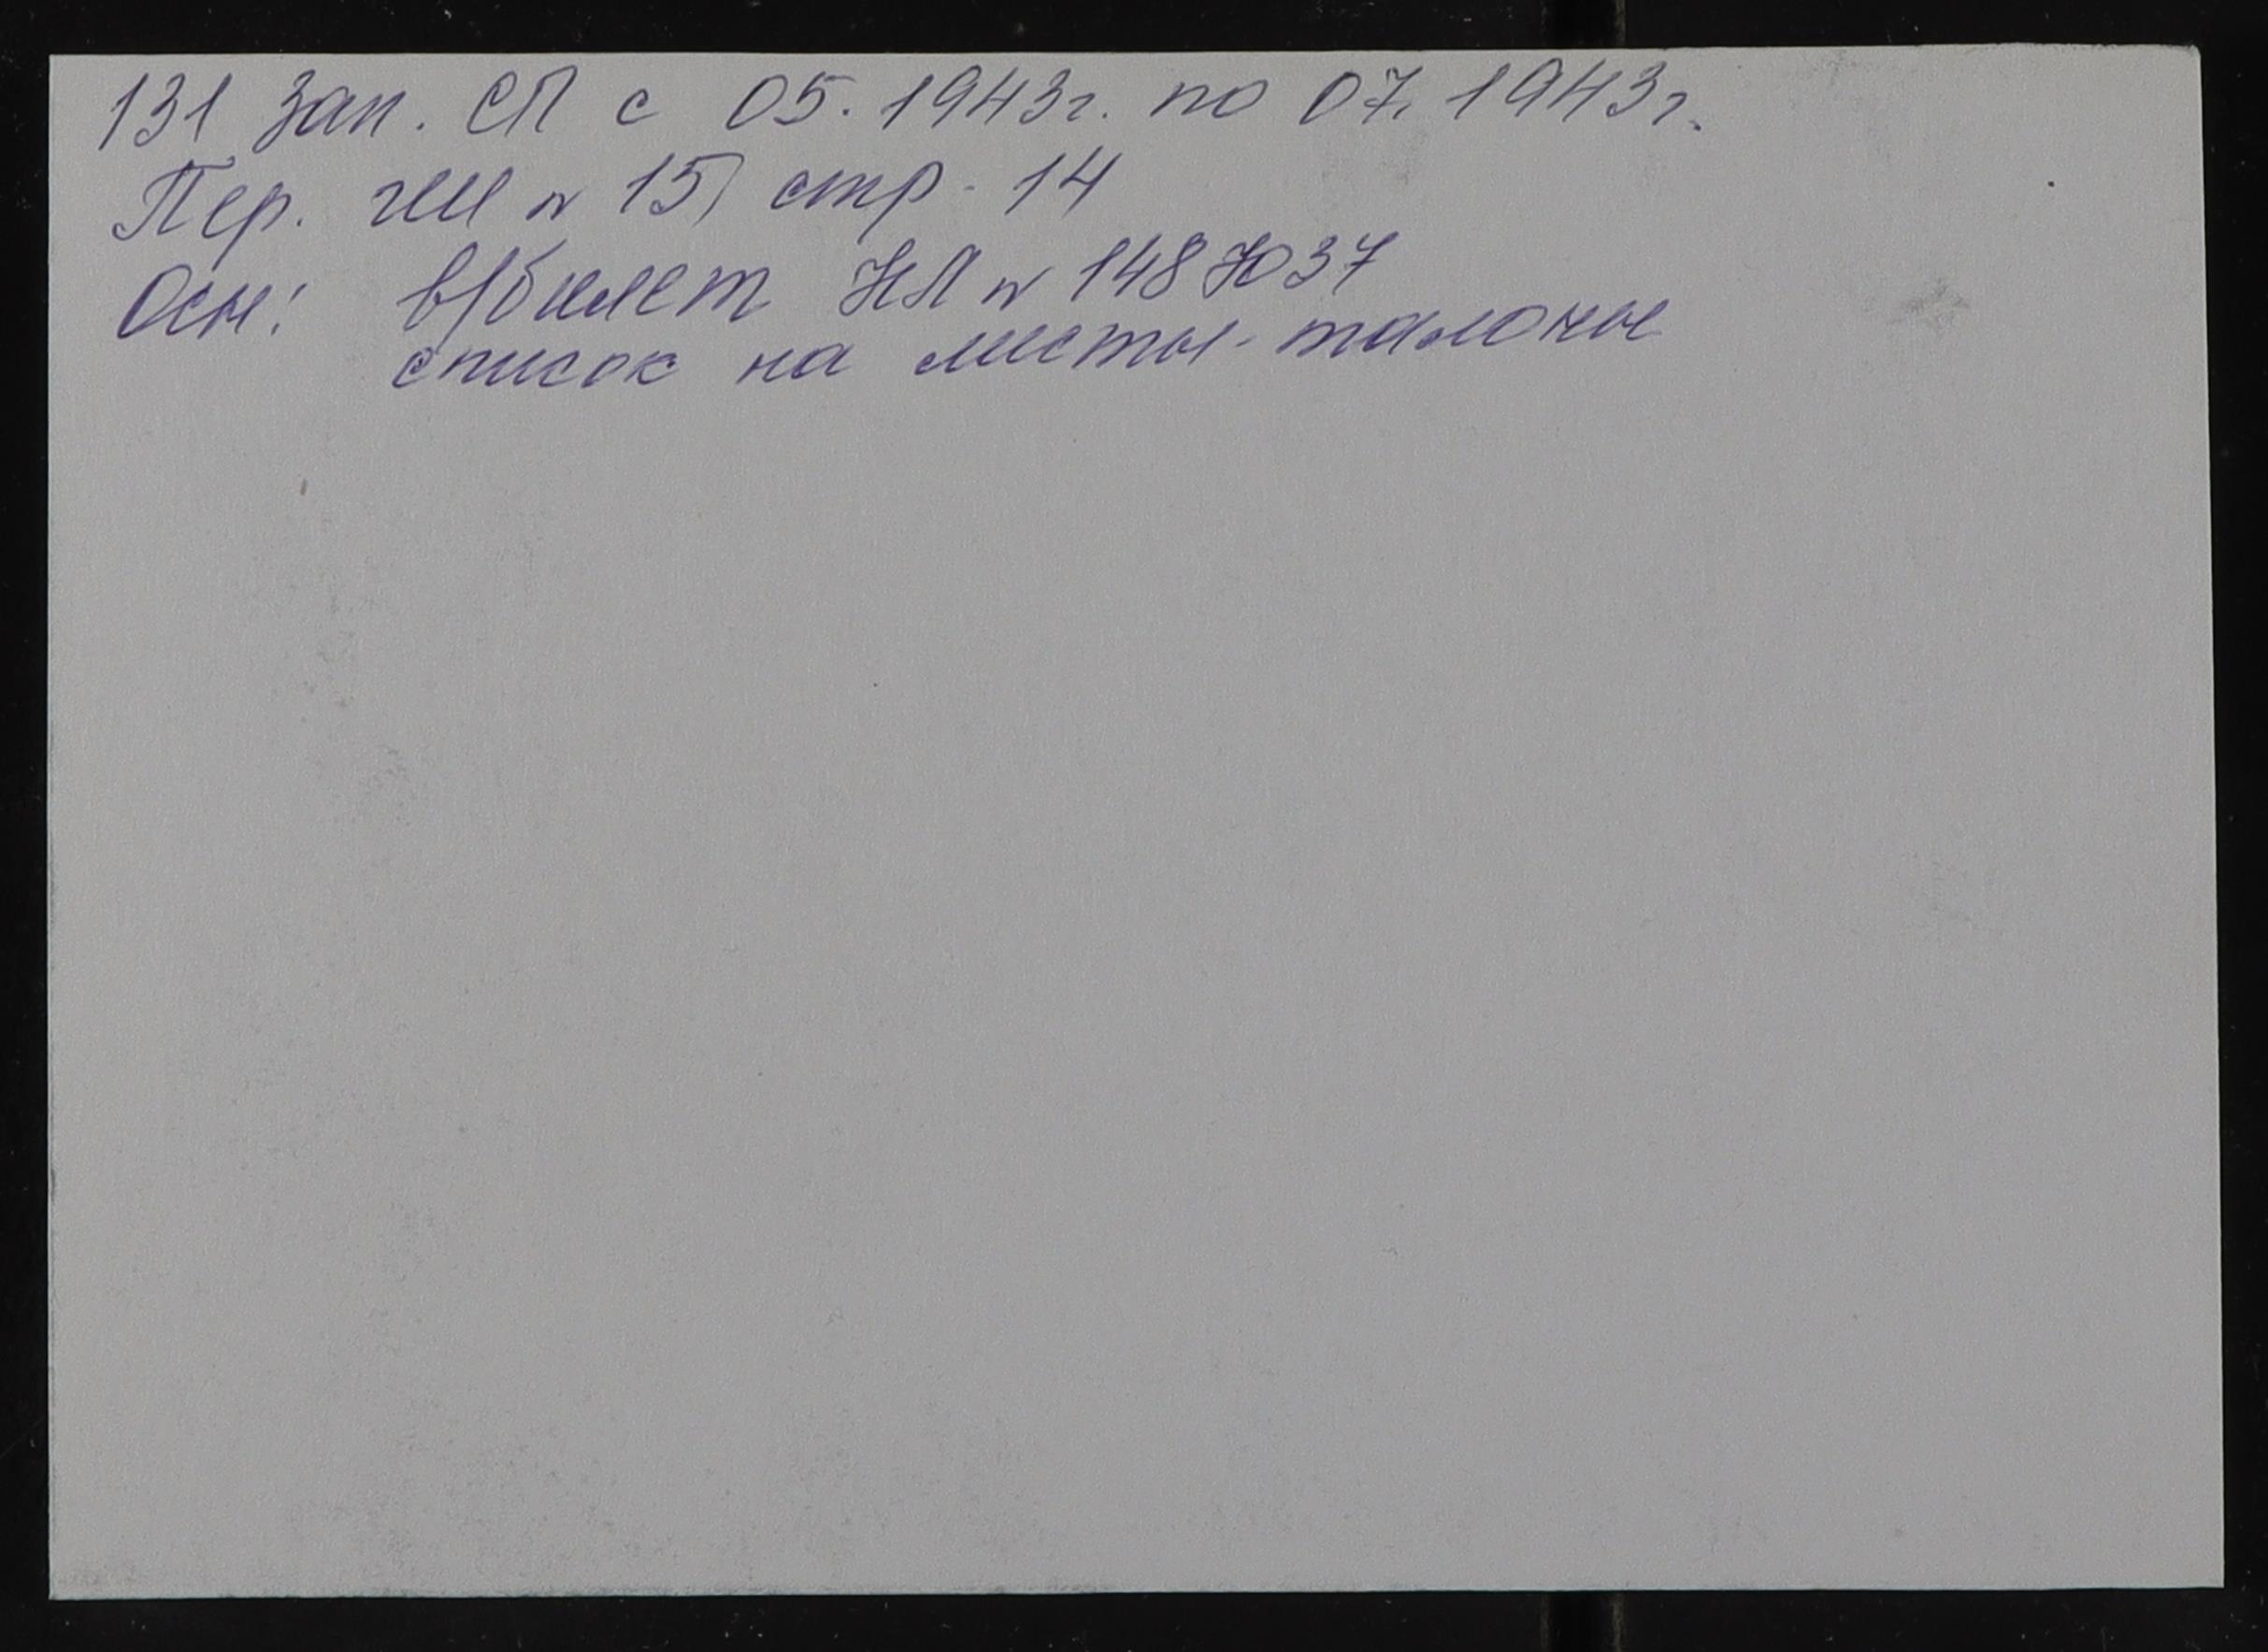 131 Зап. СП с 05. 1943г. по 07. 1943г.
Пер. ГШ № 15, стр. 14
Осн: в/билет НЛ № 148
список на листы-талоны